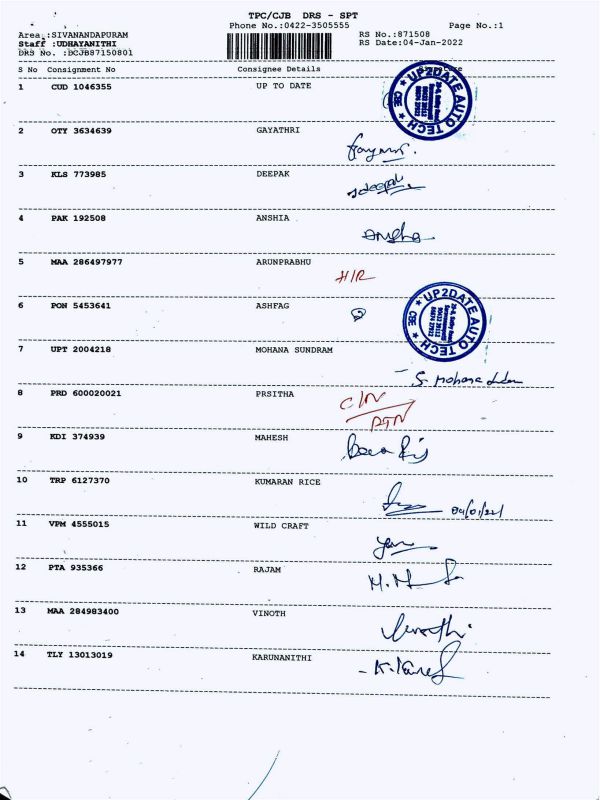 TPC/CJB DRS - SPT
Phone No.:0422-3505555 Page No.:1
Area :SIVANANDAPURAM RS No.:871508
Staff :UDHAYANITHI RS Date:04-Jan-2022
DRS No. :DCJB87150801
S No Consignment No Consignee Details
1 CUD 1046355 UP TO DATE
UP2DATE AUTO TECH CBE
2 OTY 3634639 GAYATHRI
3 KLS 773985 DEEPAK
Sdeepak
4 PAK 192508 ANSHIA
5 MAA 286497977 ARUNPRABHU
H/R
6 PON 5453641 ASHFAG
UP2DATE AUTO TECH CBE
7 UPT 2004218 MOHANA SUNDRAM
8 PRD 600020021 PRSITHA
C/N
RTN
9 KDI 374939 MAHESH
10 TRP 6127370 KUMARAN RICE
04/01/22
11 VPM 4555015 WILD CRAFT
12 PTA 935366 RAJAM
13 MAA 284983400 VINOTH
Vinoth
14 TLY 13013019 KARUNANITHI